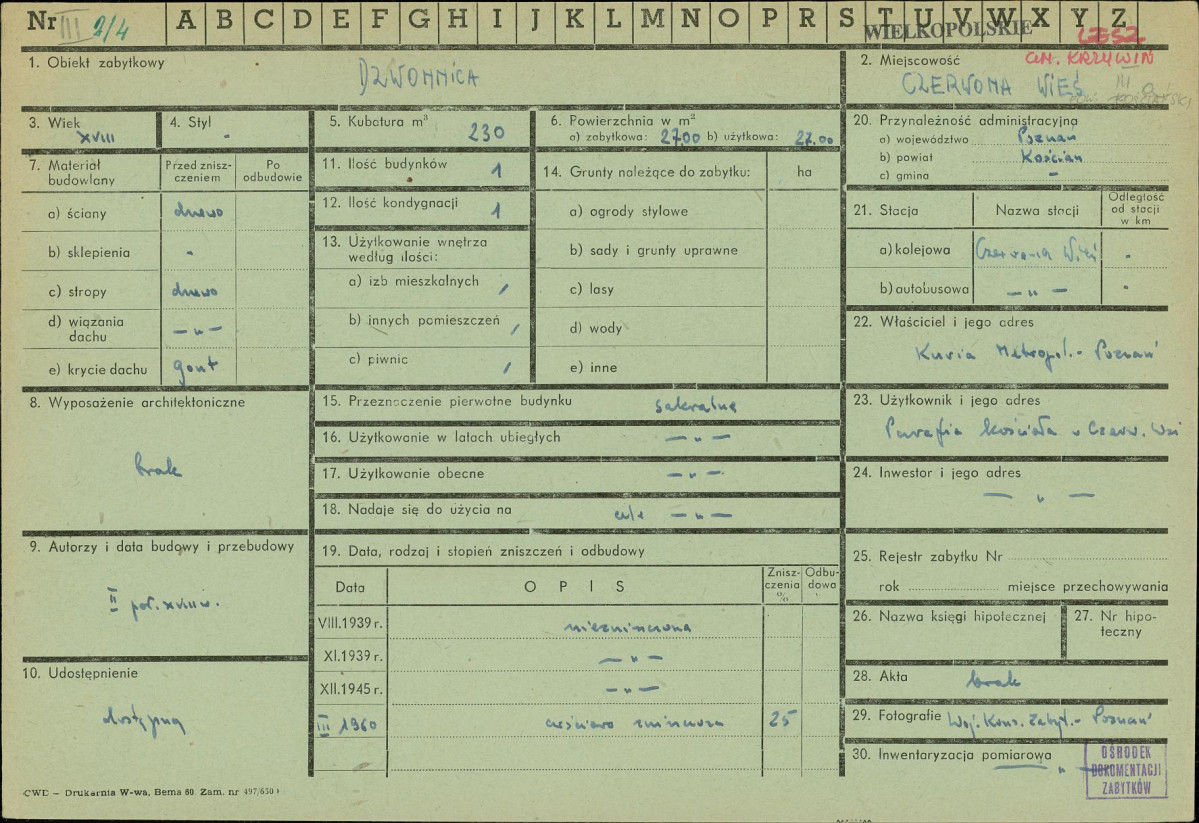 Nr III 2/4 A B C D E F G H I J K L M N O P R S T U V W X Y Z
WIELKOPOLSKIE
LESZ
GM. KRZYWIŃ
1. Obiekt zabytkowy
DZWONNICA
2. Miejscowość
CZERWONA WIEŚ
3. Wiek
XVIII
4. Styl
-
5. Kubatura m³
230
6. Powierzchnia w m²
a) zabytkowa: 27.00 b) użytkowa: 27.00
20. Przynależność administracyjna
a) województwo Poznań
b) powiat Kościan
c) gmina -
7. Materiał budowlany
Przed zniszczeniem
Po odbudowie
a) ściany drewo
b) sklepienia -
c) stropy drewo
d) wiązania dachu — „ —
e) krycie dachu gont
11. Ilość budynków 1
12. Ilość kondygnacji 1
13. Użytkowanie wnętrza według ilości:
a) izb mieszkalnych /
b) innych pomieszczeń /
c) piwnic /
14. Grunty należące do zabytku: ha
a) ogrody stylowe
b) sady i grunty uprawne
c) lasy
d) wody
e) inne
21. Stacja
Nazwa stacji
Odległość od stacji w km
a) kolejowa Czerwona Wieś -
b) autobusowa — „ — -
22. Właściciel i jego adres
Kuria Metropol. - Poznań
8. Wyposażenie architektoniczne
brak
15. Przeznaczenie pierwotne budynku sakralne
16. Użytkowanie w latach ubiegłych — „ —
17. Użytkowanie obecne — „ —
18. Nadaje się do użycia na cele — „ —
23. Użytkownik i jego adres
Parafia Kościoła w Czerw. Wsi
24. Inwestor i jego adres
— „ —
9. Autorzy i data budowy i przebudowy
II poł. XVIII w.
19. Data, rodzaj i stopień zniszczeń i odbudowy
Data
OPIS
Zniszczenia %
Odbudowa
VIII.1939 r. niezniszczona
XI.1939 r. — „ —
XII.1945 r. — „ —
III 1960 częściowo zniszczona 25
25. Rejestr zabytku Nr
rok miejsce przechowywania
26. Nazwa księgi hipotecznej
27. Nr hipoteczny
10. Udostępnienie
dostępny
28. Akta brak
29. Fotografie Woj. Kons. Zabyt. - Poznań
30. Inwentaryzacja pomiarowa — „ —
OŚRODEK
DOKUMENTACJI
ZABYTKÓW
CWD – Drukarnia W-wa, Bema 60. Zam. nr 497/650